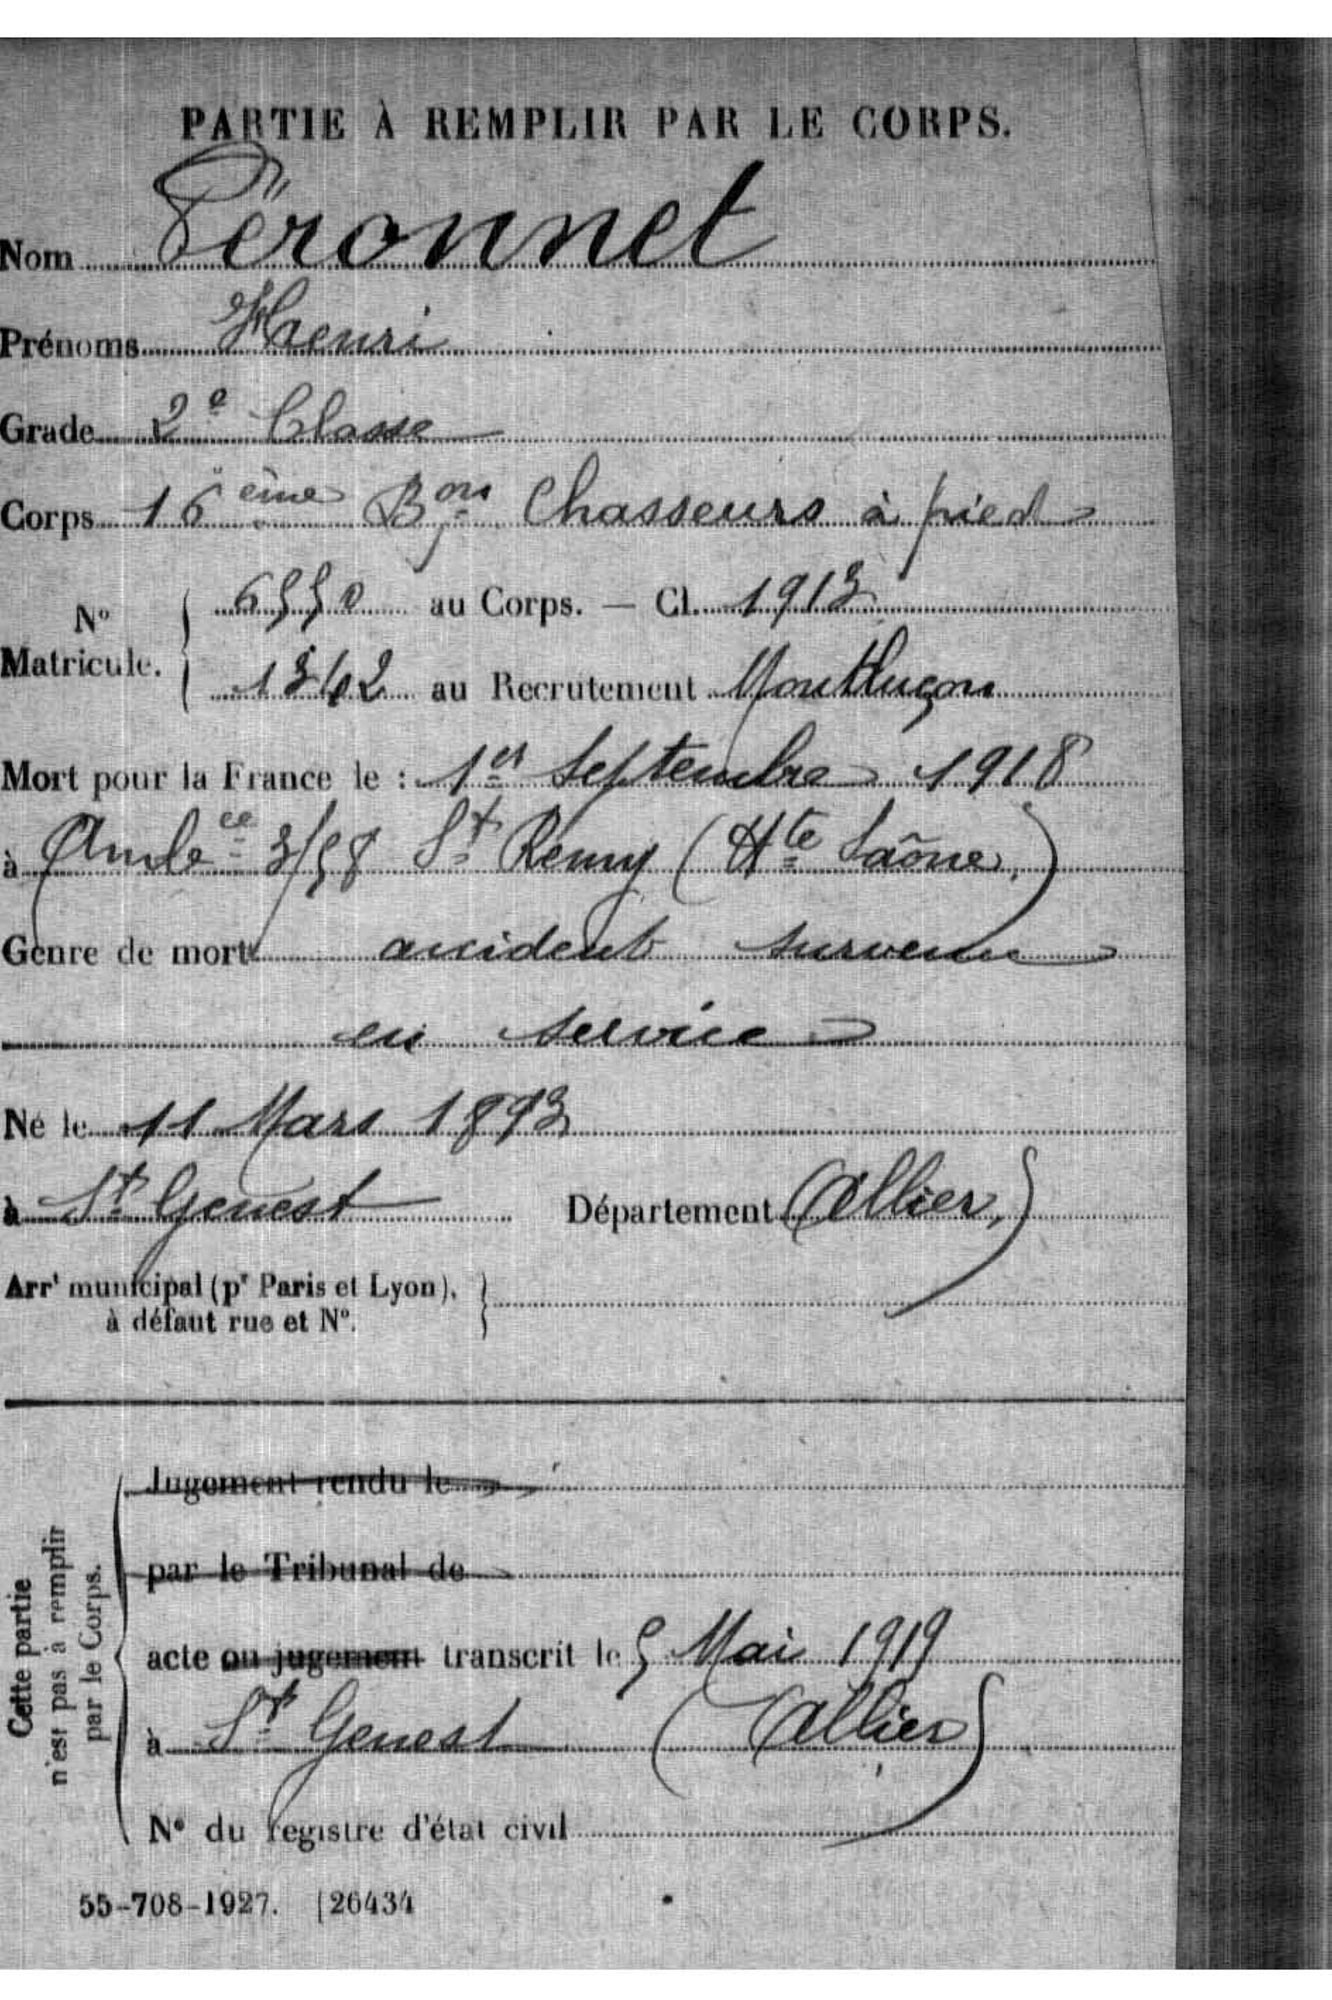 PARTIE À REMPLIR PAR LE CORPS.
Nom Péronnet
Prénoms Henri
Grade 2e Classe
Corps 16ème Bon Chasseurs à pied
No Matricule. { 6550 au Corps. — Cl. 1913
au Recrutement Montluçon
Mort pour la France le : 1er Septembre 1918
à Ambce 3/58 St Remy (Hte Saône)
Genre de mort accident survenu
en service
Né le 11 Mars 1893
à St Genest Département (Allier)
Arrt municipal (pr Paris et Lyon), }
à défaut rue et No.
Cette partie
n'est pas à remplir
par le Corps.
Jugement rendu le
par le Tribunal de
acte ou jugement transcrit le 5 Mai 1919
à St Genest (Allier)
No du registre d'état civil
55-708-1927. [26434